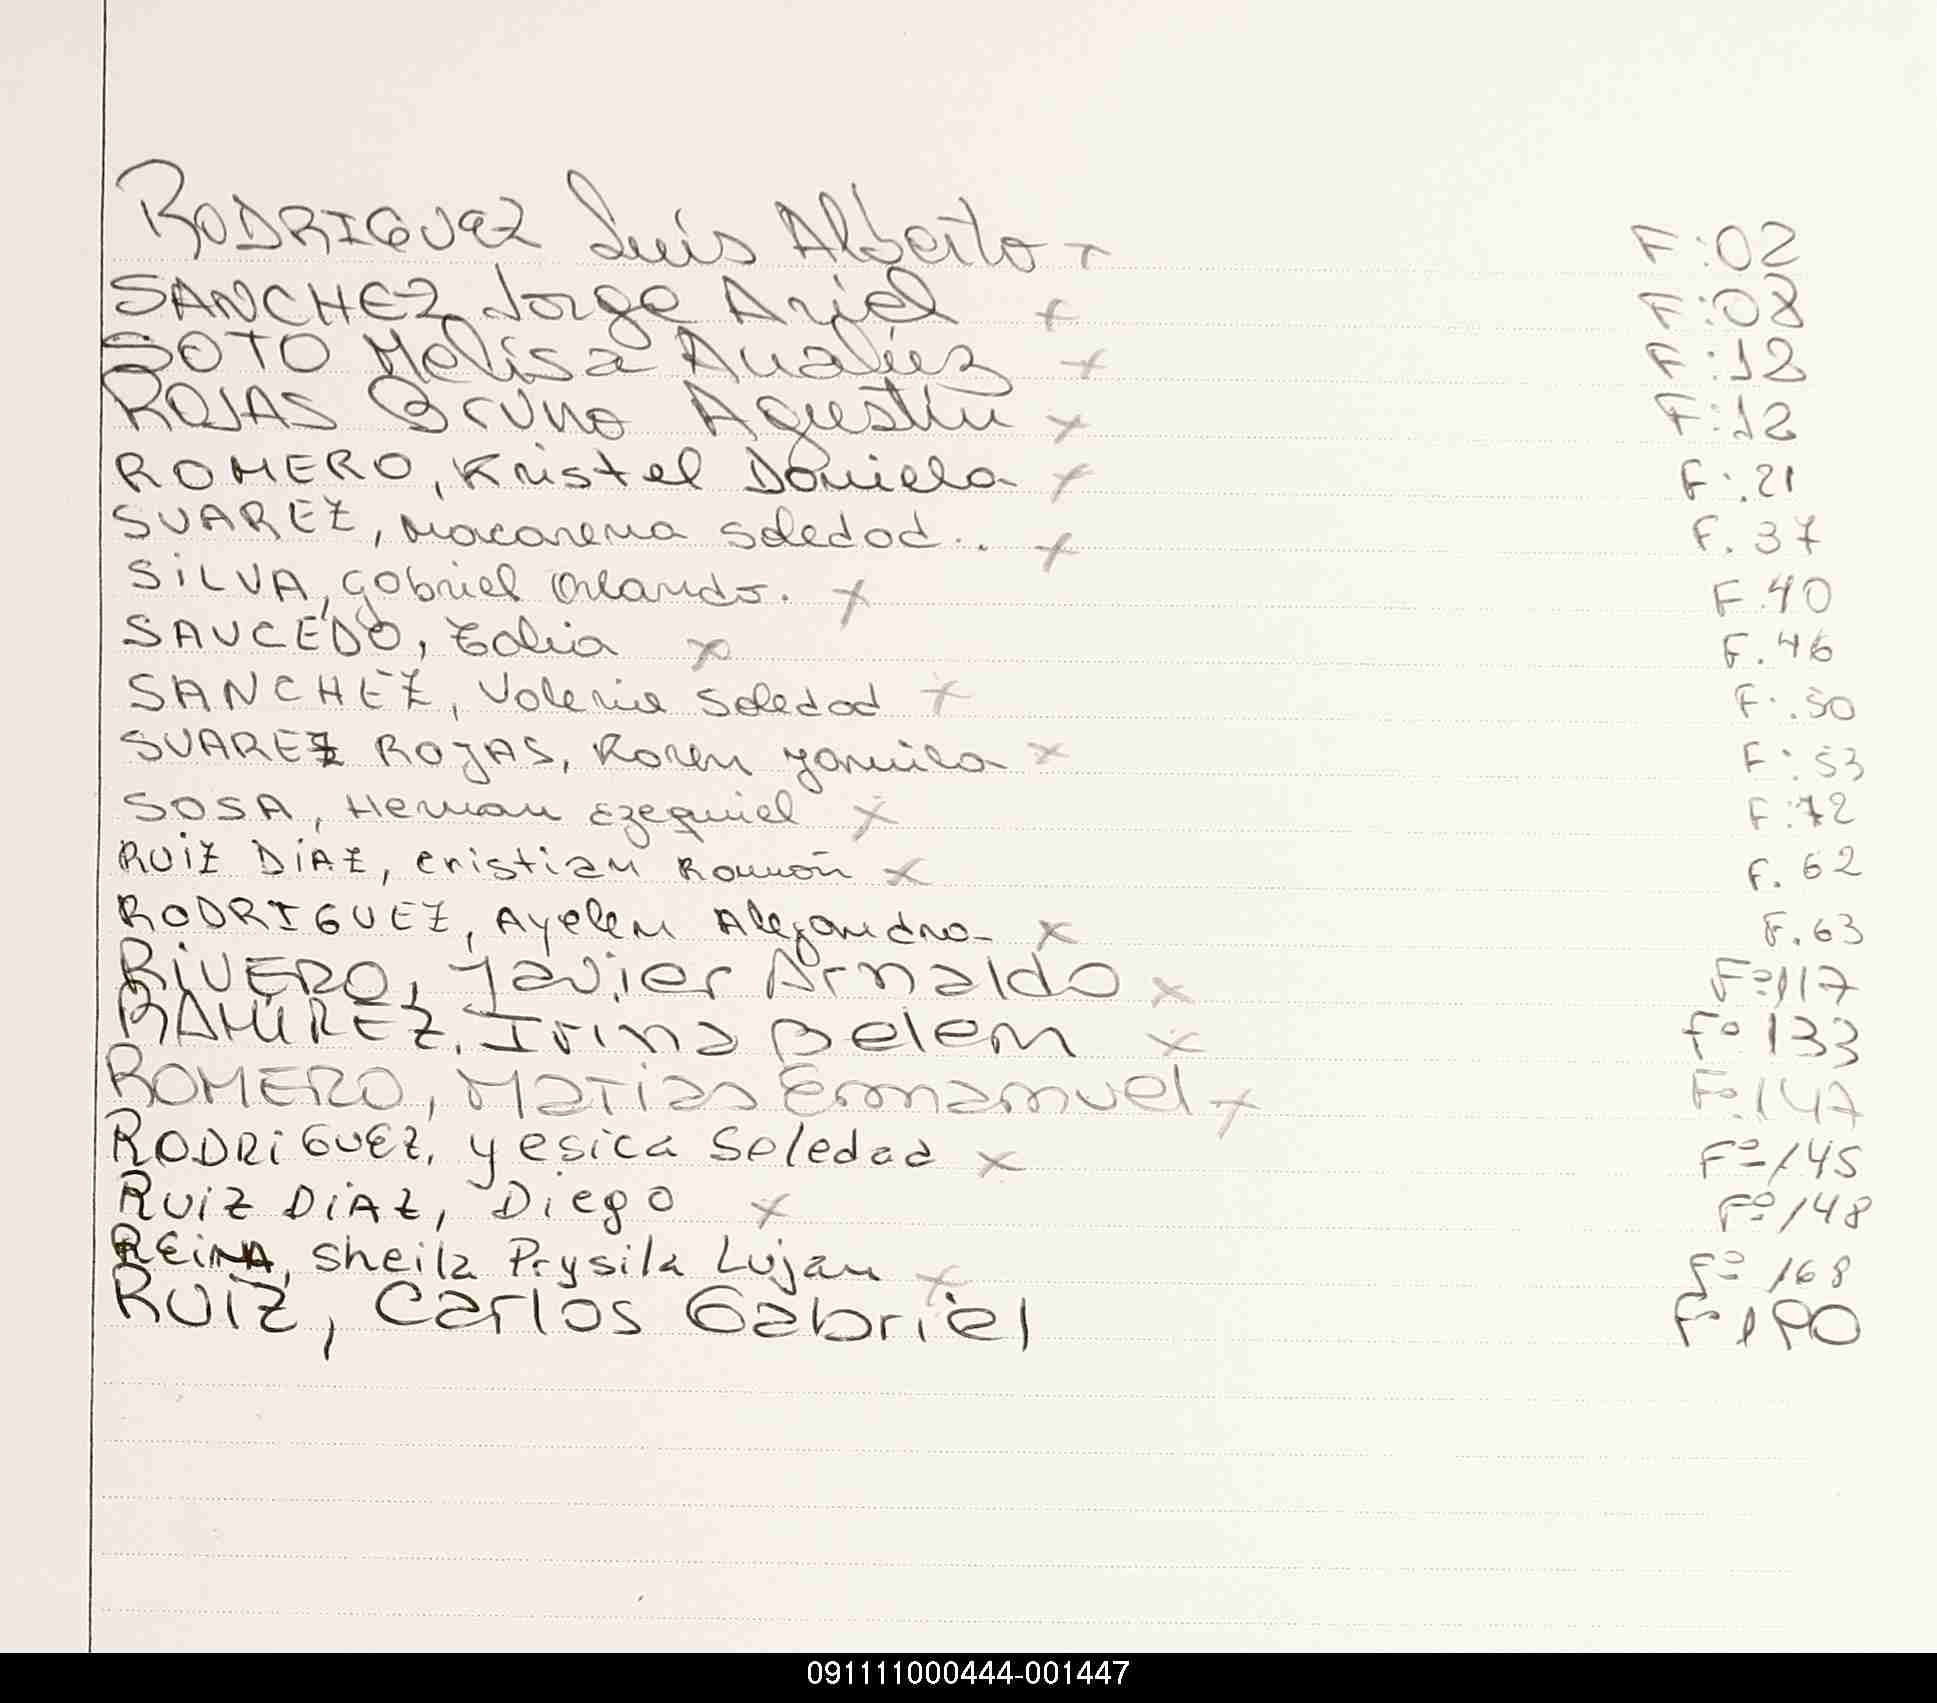 RODRIGUEZ Luis Alberto + F:02
SANCHEZ Jorge Ariel + F:08
SOTO Melisa Analiez + F:12
ROJAS Bruno Agustin x F:12
ROMERO, Kristel Daniela x F:.21
SUAREZ, Macarena Soledad.. x F.37
SILVA, Gabriel Orlando. x F.40
SAUCEDO, x F.46
SANCHEZ, Valeria Soledad x F:.50
SUAREZ ROJAS, Karen Yamila x F:.53
SOSA, Hernan Ezequiel x F:72
RUIZ DIAZ, Cristian Ramón x F.62
RODRIGUEZ, Ayelen Alejandra x F.63
RIVERO, Javier Arnaldo x Fº117
RAMIREZ, Irina Belem x Fº 133
ROMERO, Matias Emmanuel x Fº.147
RODRIGUEZ, Yesica Soledad x Fº145
RUIZ DIAZ, Diego x Fº148
REINA, Sheila Prysila Lujan x Fº 168
RUIZ, Carlos Gabriel Fº190
091111000444-001447